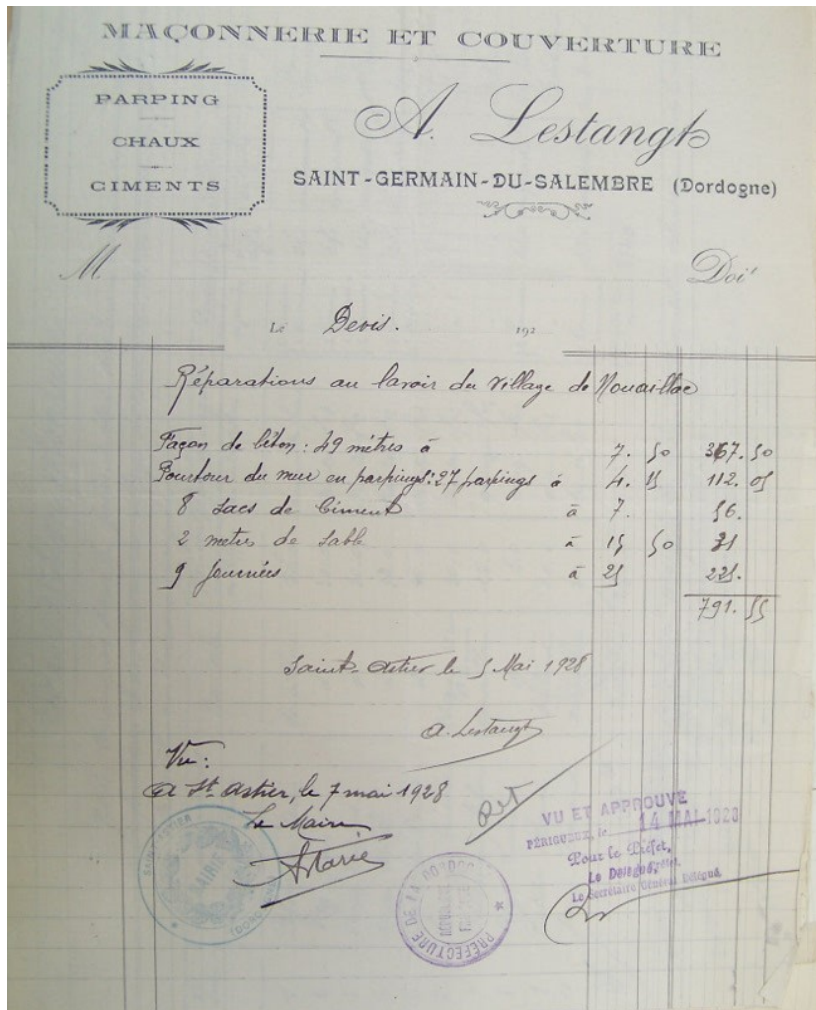 MAÇONNERIE ET COUVERTURE
PARPING
CHAUX
CIMENTS
A. Lestangt
SAINT-GERMAIN-DU-SALEMBRE (Dordogne)
M
Doit
Le Devis. 192
Réparations au lavoir du village de Nouaillac
Façon de béton : 49 mètres à 7. 50 367. 50
Pourtour du mur en parpings : 27 parpings à 4. 15 112. 05
8 sacs de Ciment à 7. 56.
2 metres de sable à 15 50 31
9 journées à 25 225.
791. 55
Saint-Astier le 5 Mai 1928
A. Lestangt
Vu :
A St Astier, le 7 mai 1928
Le Maire
VU ET APPROUVÉ
PÉRIGUEUX, le 14 MAI 1928
Pour le Préfet,
Le Délégué,
Le Secrétaire Général Délégué
MAIRIE
PRÉFECTURE DE LA DORDOGNE